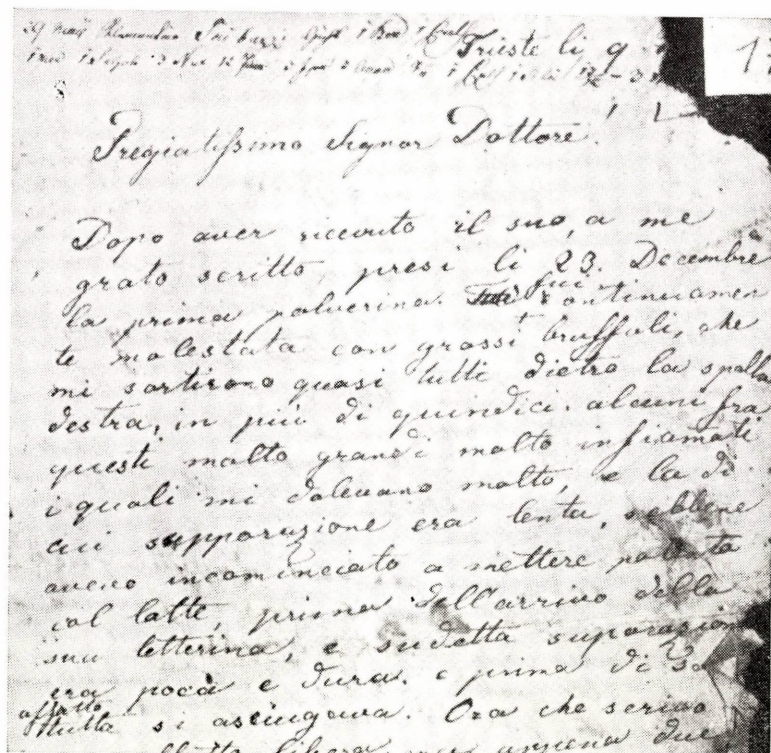 Trieste li 9
17
Pregiatissimo Signor Dottore!
Dopo aver ricevuto il suo, a me
grato scritto presi li 23. Decembre
la prima polverina. fui continuamen
te molestata con grossi bruffoli, che
mi sortirono quasi tutti dietro la spalla
destra, in più di quindici. alcuni fra
questi molto grandi molto infiamati
i quali mi dolevano molto, e la di
cui supporazione era lenta, sebbene
avevo incominciato a mettere
col latte, prima dell'arrivo della
sua letterina, e sudetta suporazion
era poca e dura. e prima di
affatto
si asciugava. Ora che scrivo
libera due